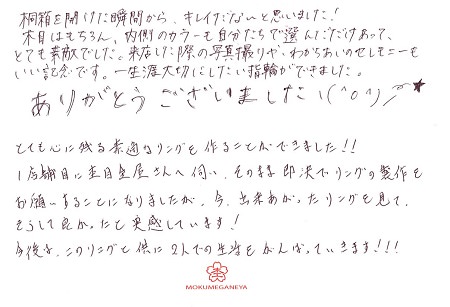 桐箱を開けた瞬間から、キレイだなぁと思いました!
木目はもちろん、内側のカラーも自分たちで選んだだけあって、
とても素敵でした。来店した際の写真撮りや、わかちあいのセレモニーも
いい記念です。一生涯大切にしたい指輪ができました。
ありがとうございました!(^o^)/★
とても心に残る素適なリングを作ることができました!!
1店舗目に杢目金屋さんへ伺い、そのまま即決でリングの製作を
お願いすることになりましたが、今、出来あがったリングを見て、
そうして良かったと実感しています!
今後は、このリングと供に2人での生活をがんばっていきます!!!
MOKUMEGANEYA